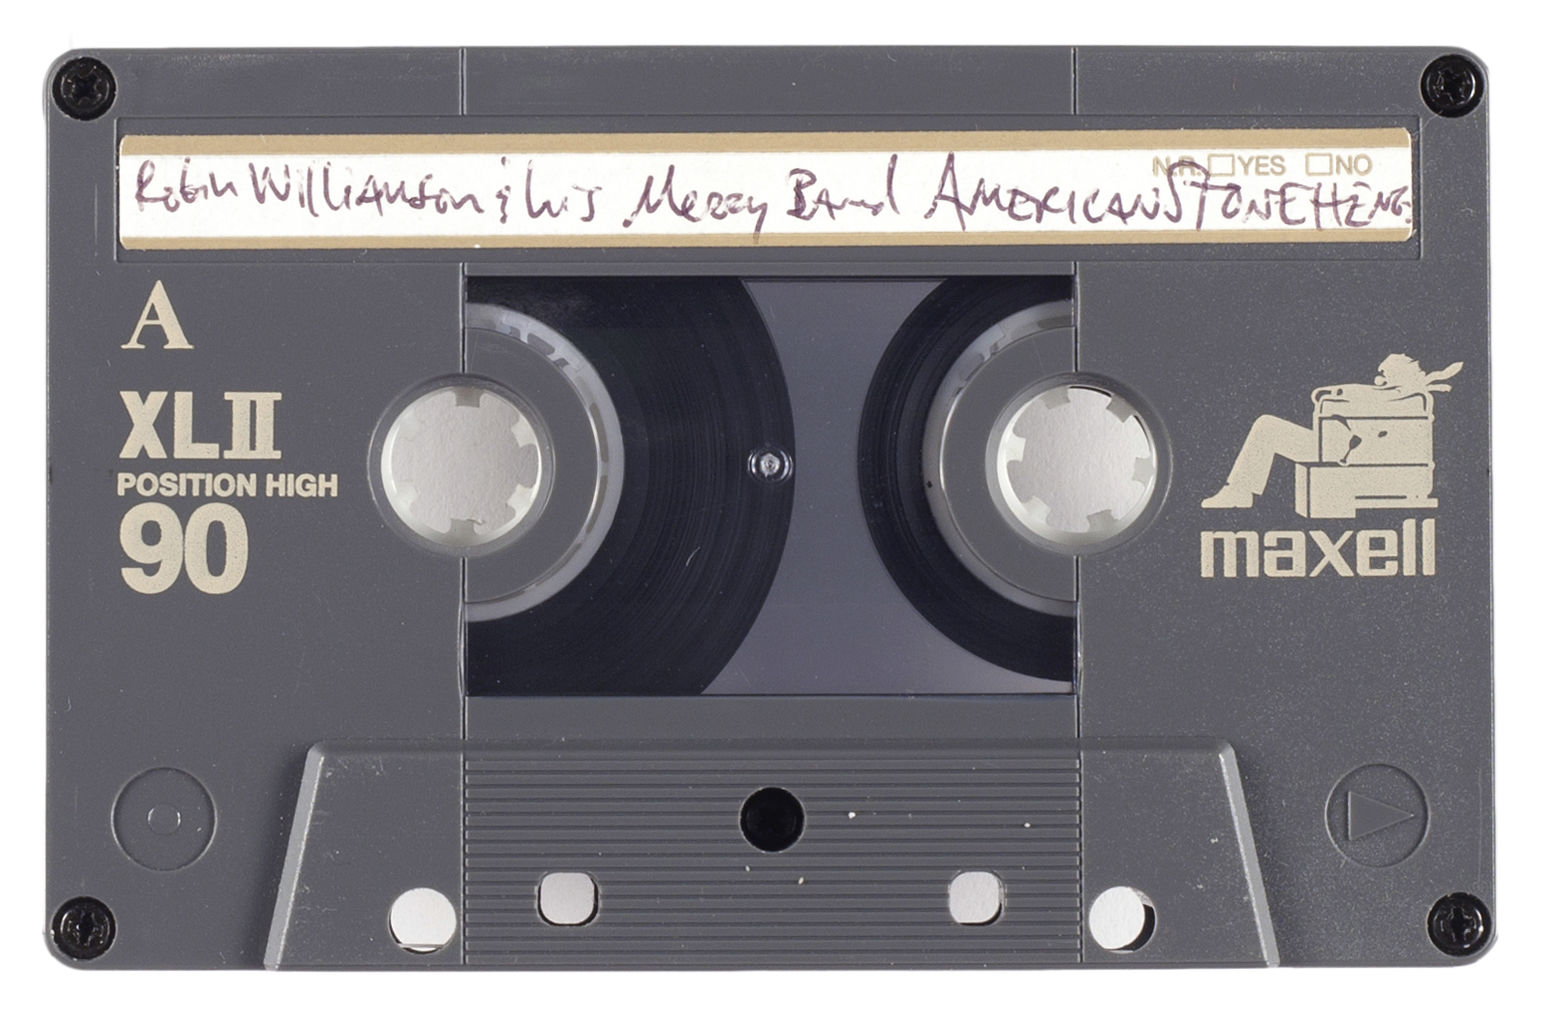 N.R. □YES □NO
Robin Williamson & his Merry Band American Stoneheng
A
XLII
POSITION HIGH
90
maxell